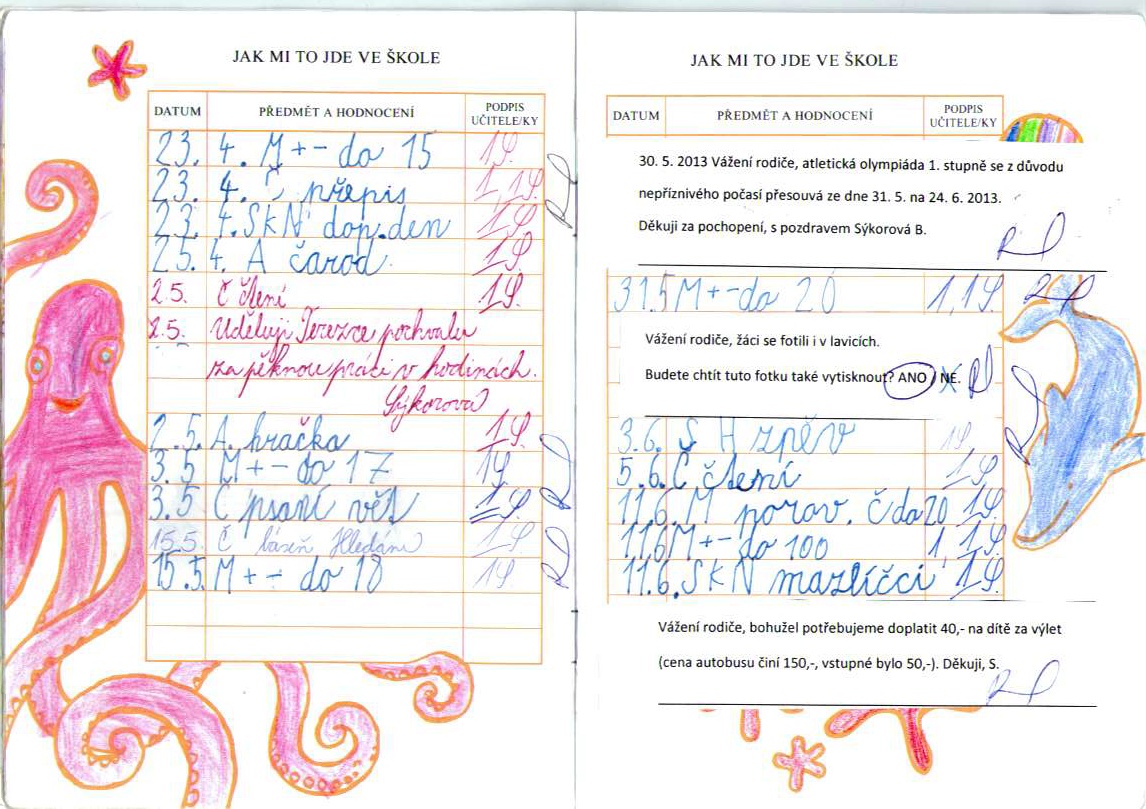 JAK MI TO JDE VE ŠKOLE
DATUM PŘEDMĚT A HODNOCENÍ PODPIS UČITELE/KY
23. 4. M + - do 15 1S
23. 4. Č přepis 1, 1S
23. 4. SkN dop. den 1S
25. 4. A čarod. 1S
2.5. Č čtení 1S
2.5. Uděluji Terezce pochvalu
za pěknou práci v hodinách.
Sýkorová
2.5. A. hračka 1S
3.5 M + - do 17 1S
3.5 Č psaní vět 1S
15.5. Č báseň Hledání 1S
15.5. M + - do 18 1S
JAK MI TO JDE VE ŠKOLE
DATUM PŘEDMĚT A HODNOCENÍ PODPIS UČITELE/KY
30. 5. 2013 Vážení rodiče, atletická olympiáda 1. stupně se z důvodu
nepříznivého počasí přesouvá ze dne 31. 5. na 24. 6. 2013.
Děkuji za pochopení, s pozdravem Sýkorová B.
31.5 M + - do 20 1, 1S
Vážení rodiče, žáci se fotili i v lavicích.
Budete chtít tuto fotku také vytisknout? ANO / NE.
3.6. H zpěv 1S
5.6. Č čtení 1S
11.6. M porov. č do 20 1S
11.6 M + - do 100 1, 1S
11.6. SkN mazlíčci 1S
Vážení rodiče, bohužel potřebujeme doplatit 40,- na dítě za výlet
(cena autobusu činí 150,-, vstupné bylo 50,-). Děkuji, S.